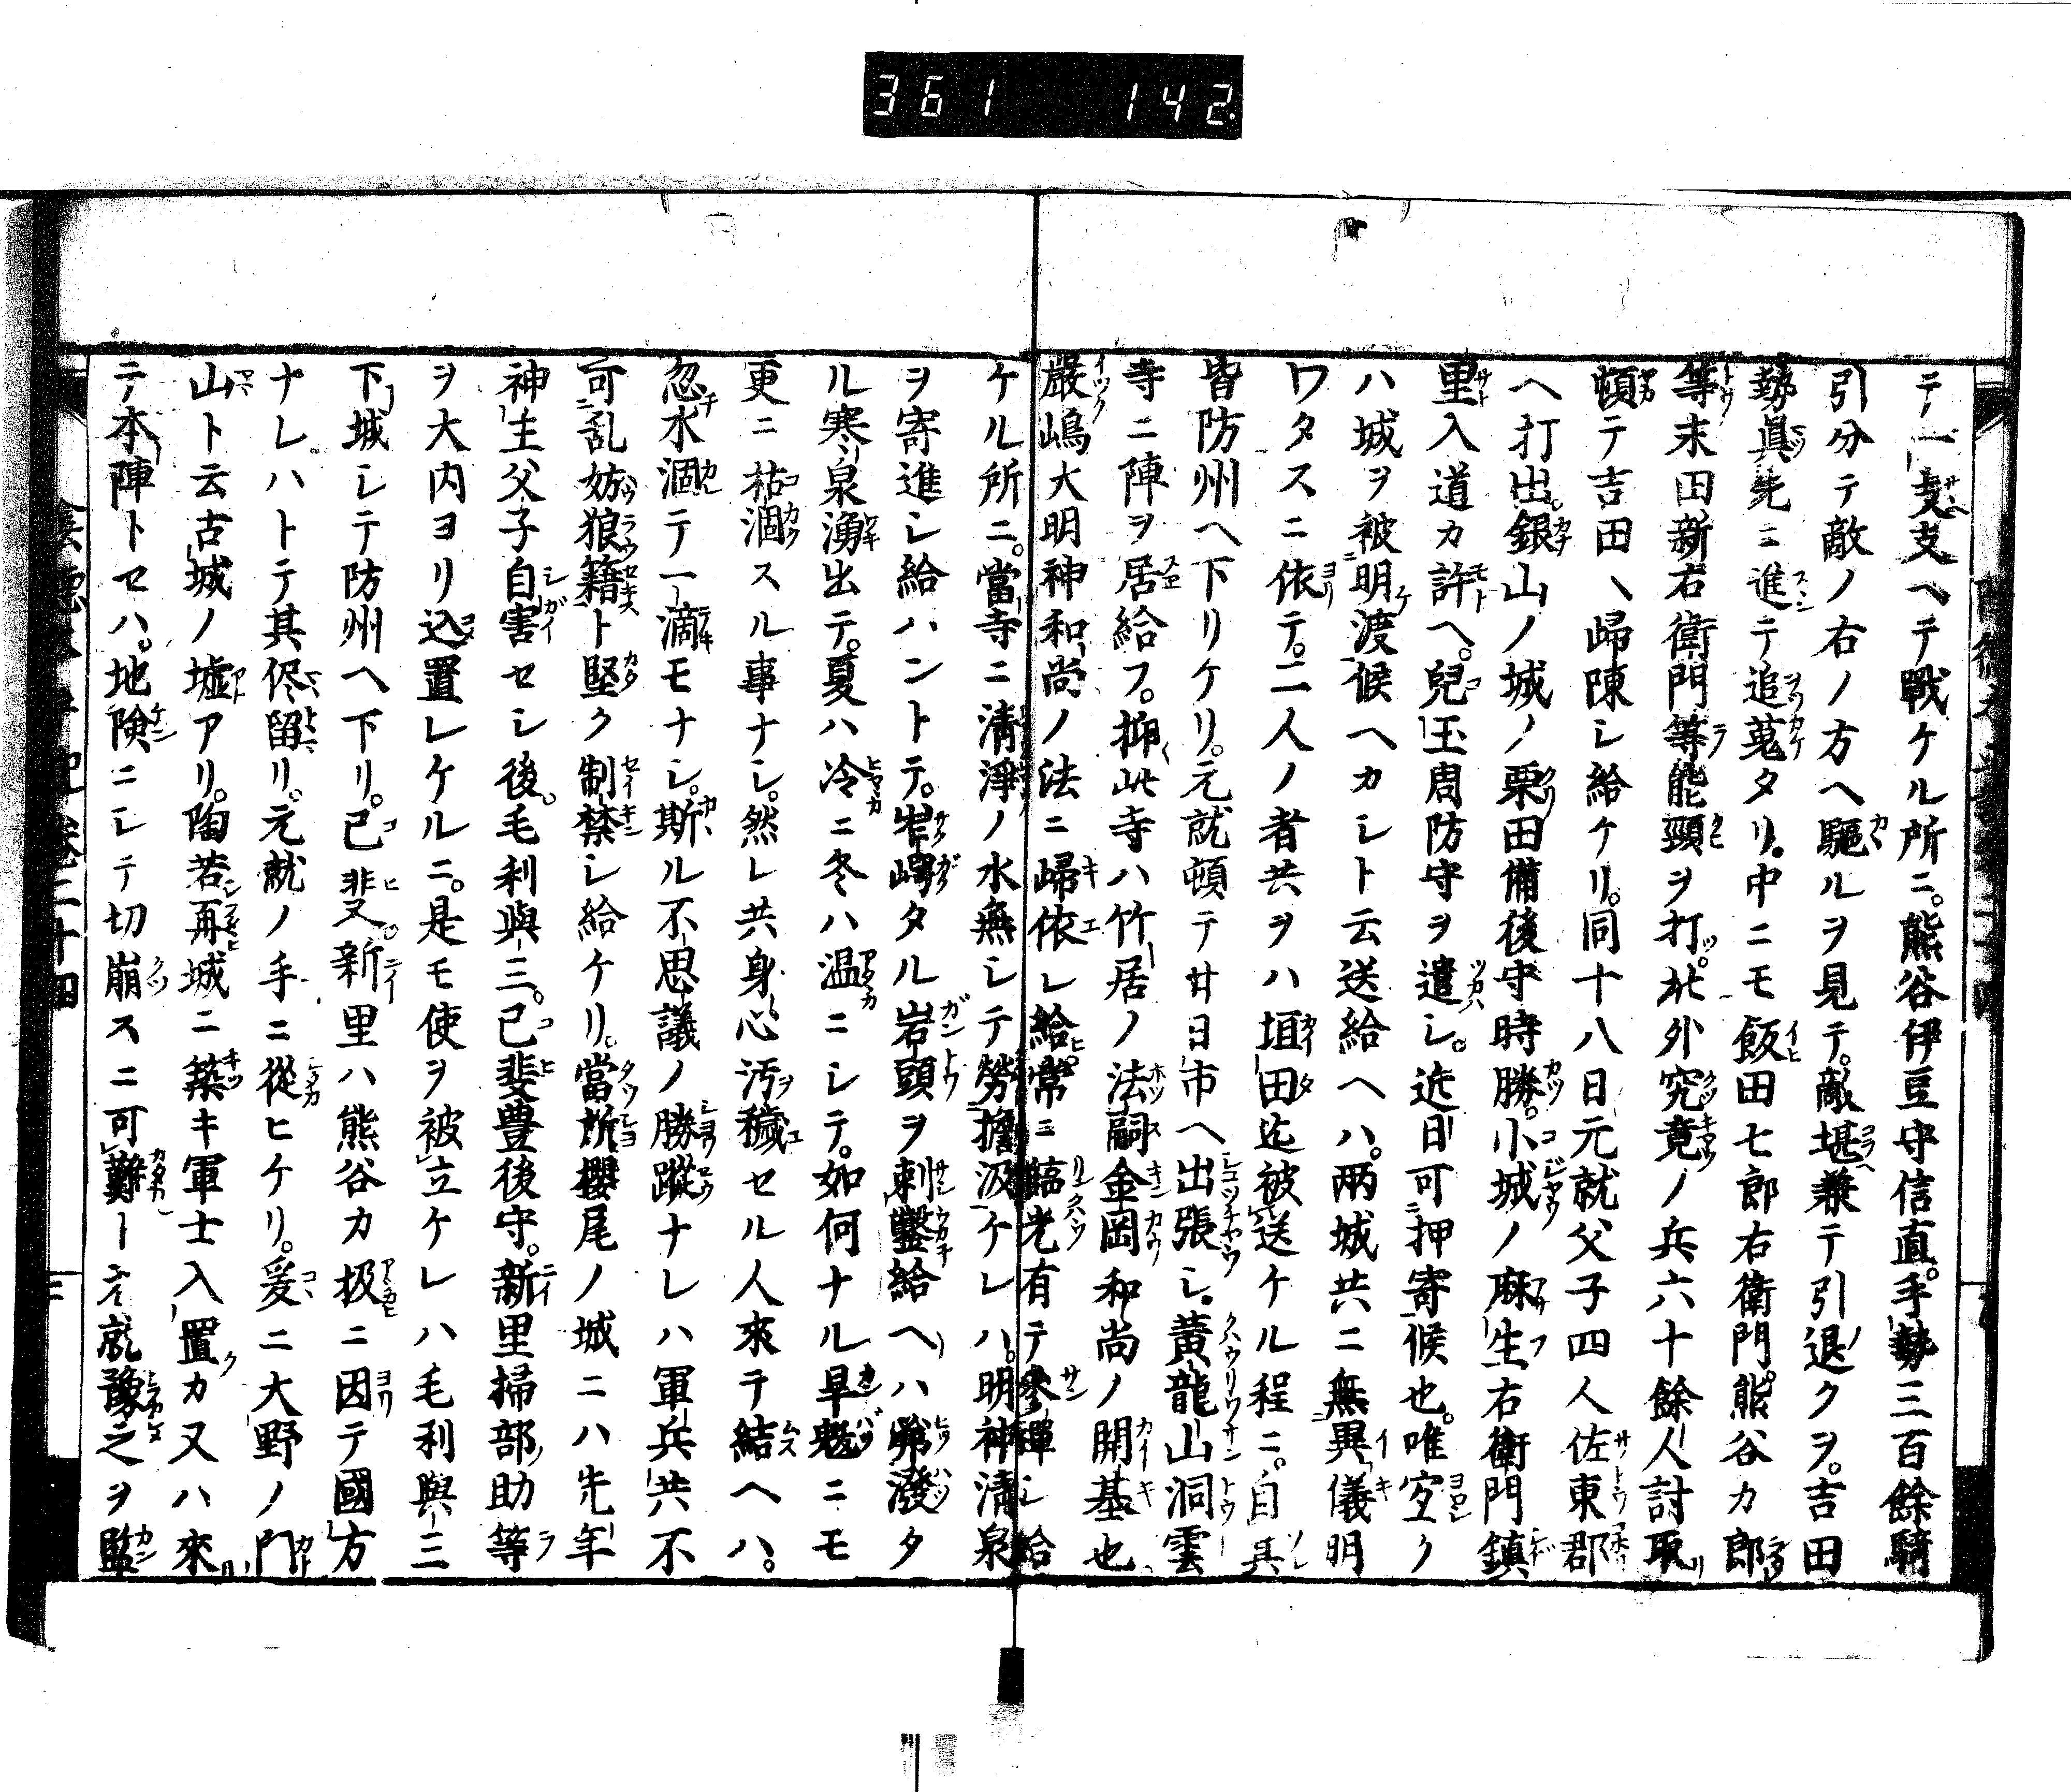 361 142.
テノ一支支ヘテ戰ケル所ニ。熊谷伊豆守信直。手勢三百餘騎
引分テ敵ノ右ノ方ヘ驅ルヲ見テ。敵堪兼テ引退クヲ。吉田
勢眞先ニ進テ追蒐タリ。中ニモ飯田七郎右衛門。熊谷カ郎
等末田新右衛門等能頸ヲ打。此外究竟ノ兵六十餘人討取
頓テ吉田ヘ歸陳シ給ケリ。同十八日元就父子四人佐東郡
ヘ打出。銀山ノ城ノ栗田備後守時勝。小城ノ麻生右衛門鎮
里入道カ許ヘ。兒玉周防守ヲ遣シ。近日可押寄候也。唯空ク
ハ城ヲ被明渡候ヘカシト云送給ヘハ。兩城共ニ無異儀明
ワタスニ依テ。二人ノ者共ヲハ垣田迄被送ケル程ニ。自其
皆防州ヘ下リケリ。元就頓テ廿日市ヘ出張シ。黃龍山洞雲
寺ニ陣ヲ居給フ。抑此寺ハ竹居ノ法嗣金岡和尚ノ開基也
嚴嶋大明神和尚ノ法ニ歸依シ給。常ニ光有テ參禪シ給
ケル所ニ。當寺ニ清淨ノ水無シテ勞擔汲ケレハ。明神清泉
ヲ寄進シ給ハントテ。岝崿タル岩頭ヲ刺鑿給ヘハ觱潑タ
ル寒泉湧出テ。夏ハ冷ニ冬ハ温ニシテ。如何ナル旱魃ニモ
更ニ枯涸スル事ナシ。然レ共身心汚穢セル人來テ結ヘハ。
忽水涸テ一滴モナシ。斯ル不思議ノ勝蹤ナレハ軍兵共不
可乱妨狼籍ト堅ク制禁シ給ケリ。當所櫻尾ノ城ニハ先年
神主父子自害セシ後。毛利與三。己斐豊後守。新里掃部助等
ヲ大内ヨリ込置レケルニ。是モ使ヲ被立ケレハ毛利與三
下城シテ防州ヘ下リ。己斐。新里ハ熊谷カ扱ニ因テ國方
ナレハトテ其侭留リ。元就ノ手ニ從ヒケリ。爰ニ大野ノ門
山ト云古城ノ墟アリ。陶若再城ニ築キ軍士入置カ又ハ來
テ本陣トセハ。地險ニシテ切崩スニ可難ーー元就豫之ヲ監